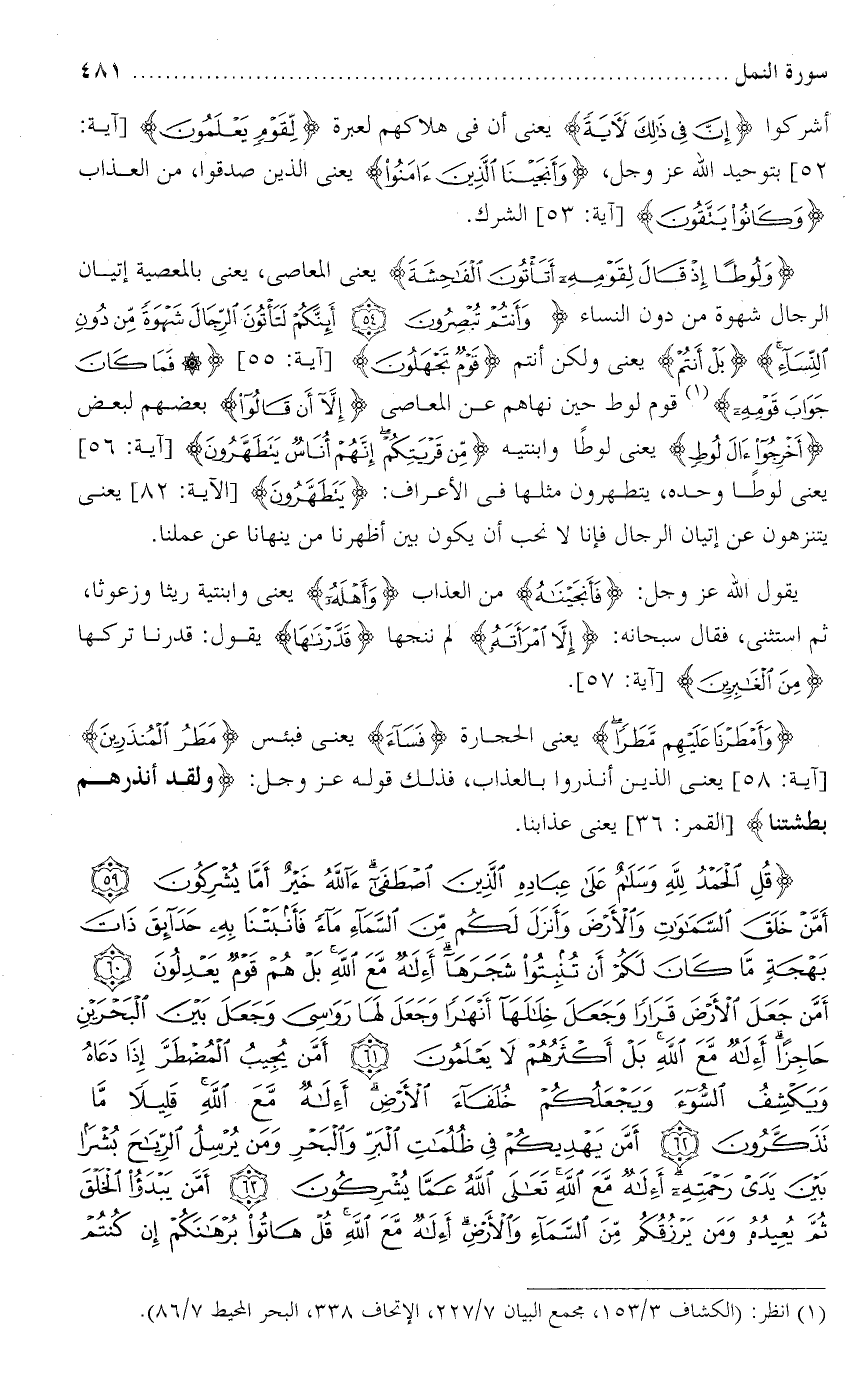 سورة النمل ........................................................................ ٤٨١
أشركوا ﴿إِنَّ فِى ذَٰلِكَ لَأَيَةً﴾ يعنى أن فى هلاكهم لعبرة ﴿لِّقَوْمٍ يَعْلَمُونَ﴾ [آية:
٥٢] بتوحيد الله عز وجل، ﴿وَأَنجَيْنَا ٱلَّذِينَ ءَامَنُواْ﴾ يعنى الذين صدقوا، من العذاب
﴿وَكَانُواْ يَتَّقُونَ﴾ [آية: ٥٣] الشرك.
﴿وَلُوطًا إِذْ قَالَ لِقَوْمِهِۦٓ أَتَأْتُونَ ٱلْفَٰحِشَةَ﴾ يعنى المعاصى، يعنى بالمعصية إتيان
الرجال شهوة من دون النساء ﴿وَأَنتُمْ تُبْصِرُونَ ٥٤ أَئِنَّكُمْ لَتَأْتُونَ ٱلرِّجَالَ شَهْوَةً مِّن دُونِ
ٱلنِّسَآءِۚ﴾ ﴿بَلْ أَنتُمْ﴾ يعنى ولكن أنتم ﴿قَوْمٌ تَجْهَلُونَ﴾ [آية: ٥٥] ﴿۞ فَمَا كَانَ
جَوَابَ قَوْمِهِۦٓ﴾(١) قوم لوط حين نهاهم عن المعاصى ﴿إِلَّآ أَن قَالُوٓاْ﴾ بعضهم لبعض
﴿أَخْرِجُوٓاْ ءَالَ لُوطٍ﴾ يعنى لوطًا وابنتيه ﴿مِّن قَرْيَتِكُمْۖ إِنَّهُمْ أُنَاسٌ يَتَطَهَّرُونَ﴾ [آية: ٥٦]
يعنى لوطًا وحده، يتطهرون مثلها فى الأعراف: ﴿يَتَطَهَّرُونَ﴾ [الآية: ٨٢] يعنى
يتنزهون عن إتيان الرجال فإنا لا نحب أن يكون بين أظهرنا من ينهانا عن عملنا.
يقول الله عز وجل: ﴿فَأَنجَيْنَٰهُ﴾ من العذاب ﴿وَأَهْلَهُۥٓ﴾ يعنى وابنتية ريثا وزعوثا،
ثم استثنى، فقال سبحانه: ﴿إِلَّا ٱمْرَأَتَهُۥ﴾ لم ننجها ﴿قَدَّرْنَٰهَا﴾ يقول: قدرنا تركها
﴿مِنَ ٱلْغَٰبِرِينَ﴾ [آية: ٥٧].
﴿وَأَمْطَرْنَا عَلَيْهِم مَّطَرًاۖ﴾ يعنى الحجارة ﴿فَسَآءَ﴾ يعنى فبئس ﴿مَطَرُ ٱلْمُنذَرِينَ﴾
[آية: ٥٨] يعنى الذين أنذروا بالعذاب، فذلك قوله عز وجل: ﴿ولقد أنذرهم
بطشتنا﴾ [القمر: ٣٦] يعنى عذابنا.
﴿قُلِ ٱلْحَمْدُ لِلَّهِ وَسَلَٰمٌ عَلَىٰ عِبَادِهِ ٱلَّذِينَ ٱصْطَفَىٰٓۗ ءَآللَّهُ خَيْرٌ أَمَّا يُشْرِكُونَ ٥٩
أَمَّنْ خَلَقَ ٱلسَّمَٰوَٰتِ وَٱلْأَرْضَ وَأَنزَلَ لَكُم مِّنَ ٱلسَّمَآءِ مَآءً فَأَنۢبَتْنَا بِهِۦ حَدَآئِقَ ذَاتَ
بَهْجَةٍ مَّا كَانَ لَكُمْ أَن تُنۢبِتُواْ شَجَرَهَآۗ أَءِلَٰهٌ مَّعَ ٱللَّهِۚ بَلْ هُمْ قَوْمٌ يَعْدِلُونَ ٦٠
أَمَّن جَعَلَ ٱلْأَرْضَ قَرَارًا وَجَعَلَ خِلَٰلَهَآ أَنْهَٰرًا وَجَعَلَ لَهَا رَوَٰسِىَ وَجَعَلَ بَيْنَ ٱلْبَحْرَيْنِ
حَاجِزًاۗ أَءِلَٰهٌ مَّعَ ٱللَّهِۚ بَلْ أَكْثَرُهُمْ لَا يَعْلَمُونَ ٦١ أَمَّن يُجِيبُ ٱلْمُضْطَرَّ إِذَا دَعَاهُ
وَيَكْشِفُ ٱلسُّوٓءَ وَيَجْعَلُكُمْ خُلَفَآءَ ٱلْأَرْضِۗ أَءِلَٰهٌ مَّعَ ٱللَّهِۚ قَلِيلًا مَّا
تَذَكَّرُونَ ٦٢ أَمَّن يَهْدِيكُمْ فِى ظُلُمَٰتِ ٱلْبَرِّ وَٱلْبَحْرِ وَمَن يُرْسِلُ ٱلرِّيَٰحَ بُشْرًۢا
بَيْنَ يَدَىْ رَحْمَتِهِۦٓۗ أَءِلَٰهٌ مَّعَ ٱللَّهِۚ تَعَٰلَى ٱللَّهُ عَمَّا يُشْرِكُونَ ٦٣ أَمَّن يَبْدَؤُاْ ٱلْخَلْقَ
ثُمَّ يُعِيدُهُۥ وَمَن يَرْزُقُكُم مِّنَ ٱلسَّمَآءِ وَٱلْأَرْضِۗ أَءِلَٰهٌ مَّعَ ٱللَّهِۚ قُلْ هَاتُواْ بُرْهَٰنَكُمْ إِن كُنتُمْ
(١) انظر: (الكشاف ١٥٣/٣، مجمع البيان ٢٢٧/٧، الإتحاف ٣٣٨، البحر المحيط ٨٦/٧).